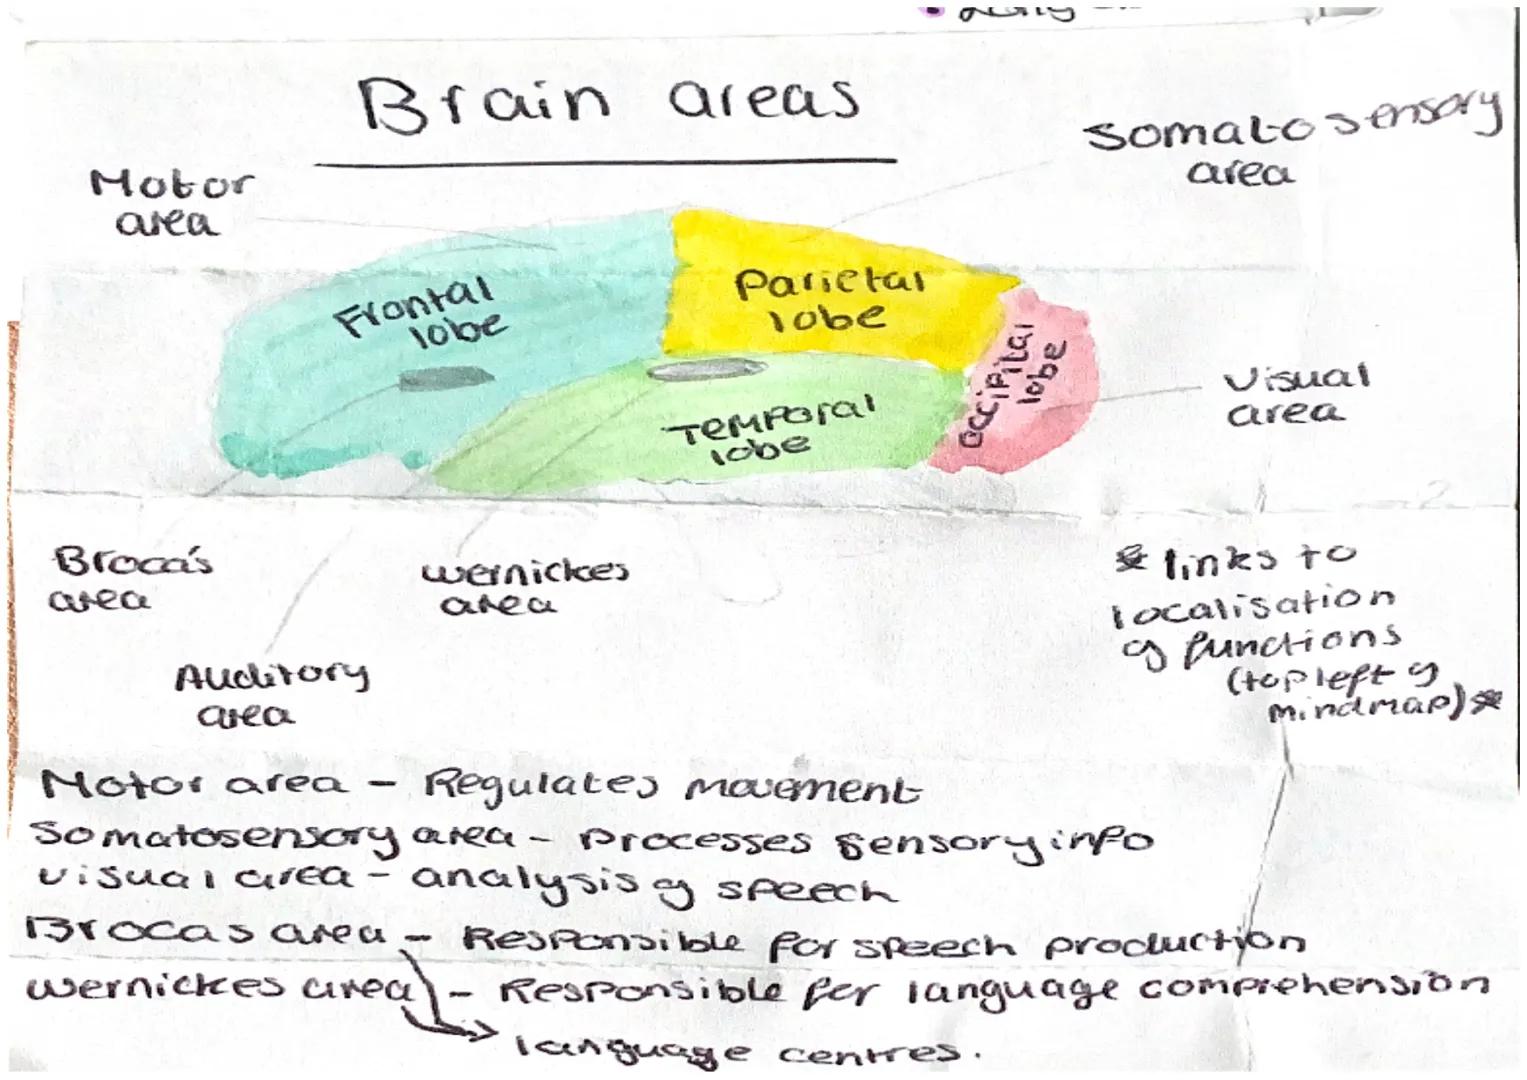 Brain areas
Motor
area
Somatosensory
area
Frontal
lobe
Parietal
lobe
Temporal
lobe
Occipital
lobe
Visual
area
Broca's
area
Wernickes
area
Auditory
area
* links to
localisation
of functions
(top left of
mindmap) *
Motor area - Regulates movement
Somatosensory area - Processes sensory info
Visual area - analysis of speech
Brocas area - Responsible for speech production
Wernickes area - Responsible for language comprehension
language centres.